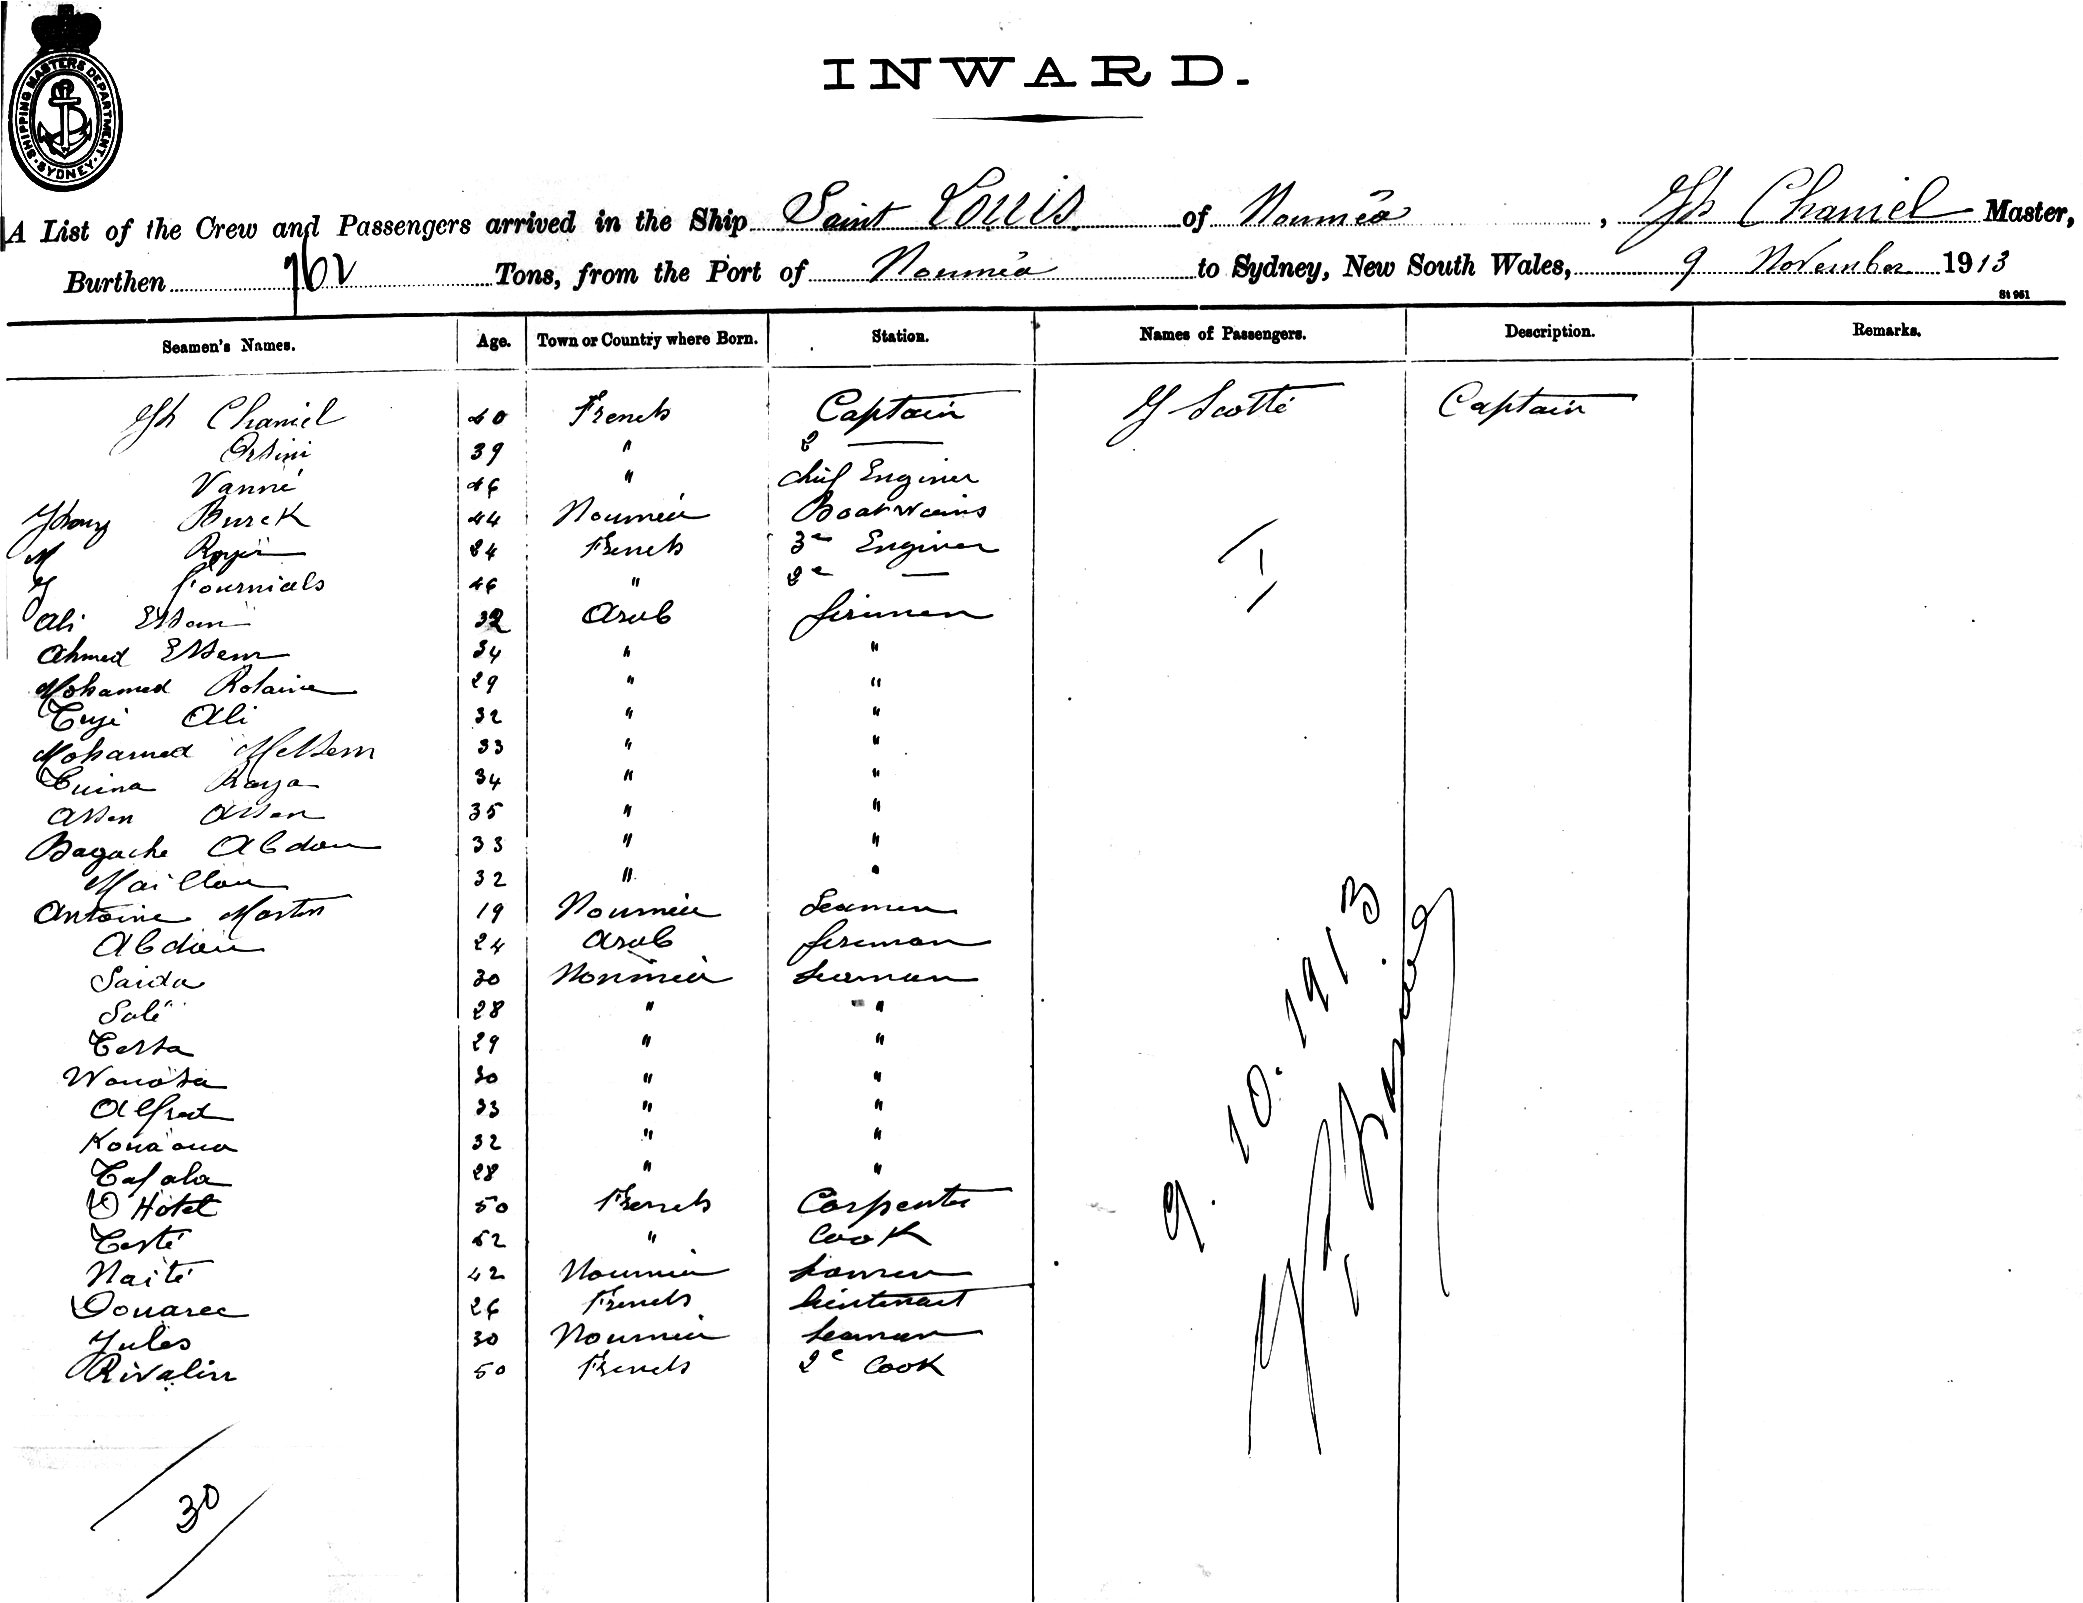 SHIPPING MASTERS DEPARTMENT · SYDNEY ·
INWARD.
A List of the Crew and Passengers arrived in the Ship Saint Louis of Nouméa, Chaniel Master,
Burthen Tons, from the Port of Nouméa to Sydney, New South Wales, 9 November 1913
St 961
Seamen's Names. Age. Town or Country where Born. Station. Names of Passengers. Description. Remarks.
Chaniel 40 French Captain Scotté Captain
Orsini 39 " 2 —
Vanné 46 " chief Enginer
Burck 44 Nouméa Boatswains
M 24 French 3e Enginer
Fournials 46 " 2e —
Ali Essem 32 Arab firemen
Ahmed Essem 34 " "
Mohamed 29 " "
Ali 32 " "
Mohamed Messem 33 " "
34 " "
Assen Assen 35 " "
Bagache Abdou 33 " "
Maillou 32 " "
Antoine Martin 19 Nouméa Seamen
Abdou 24 Arab fireman
Saida 30 Nouméa seaman
Salé 28 " "
Tessa 29 " "
30 " "
Alfred 33 " "
Kouaoua 32 " "
Tafala 28 " "
Hotel 50 French Carpenter
Testé 52 " Cook
Naité 42 Nouméa seamen
Douarec 26 French lieutenant
Jules 30 Nouméa seaman
Rivalin 50 French 2e Cook
1
9. 10. 1913
30